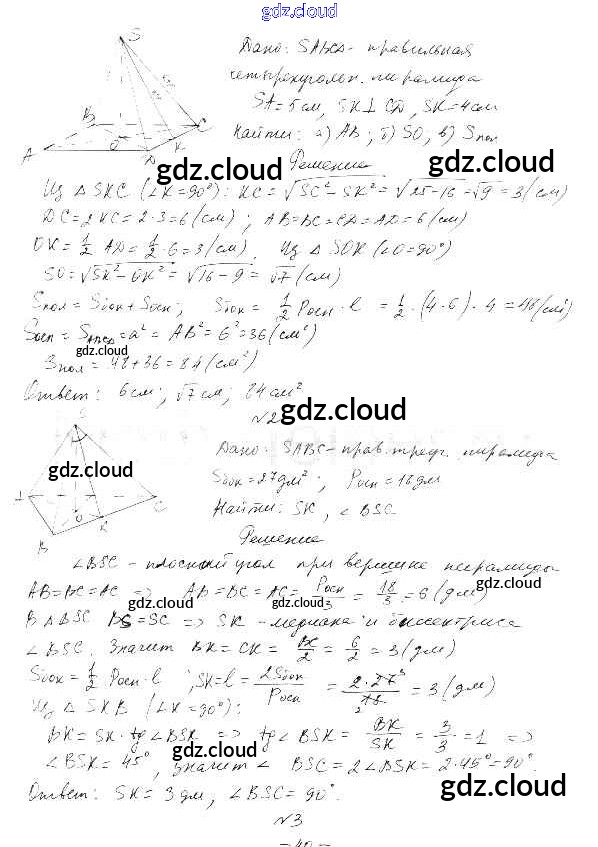 gdz.cloud
S
Дано: SABCD - правильная
четырехугольн. пирамида
SA = 5 см, SK ⊥ CD, SK = 4 см
Найти: а) AB; б) SO, в) Sпол
B C
A O D K
gdz.cloud gdz.cloud
Решение
Из △ SKC (∠K = 90°): KC = √SC² - SK² = √25-16 = √9 = 3 (см)
DC = 2KC = 2·3 = 6 (см); AB = BC = CD = AD = 6 (см)
OK = ½ AD = ½·6 = 3 (см) Из △ SOK (∠O = 90°)
SO = √SK² - OK² = √16-9 = √7 (см)
gdz.cloud
Sпол = Sбок + Sосн; Sбок = ½ Pосн · l = ½·(4·6)·4 = 48 (см²)
Sосн = SABCD = a² = AB² = 6² = 36 (см²)
gdz.cloud
Sпол = 48+36 = 84 (см²)
Ответ: 6 см; √7 см; 84 см²
gdz.cloud
N2
S
Дано: SABC - прав. треуг. пирамида
gdz.cloud
Sбок = 27 дм²; Pосн = 18 дм
Найти: SK, ∠BSC
gdz.cloud
O C
K
B
Решение
∠BSC - плоский угол при вершине пирамиды
AB = BC = AC => AB = BC = AC = Pосн/3 = 18/3 = 6 (дм)
gdz.cloud gdz.cloud
В △ BSC BS = SC => SK - медиана и биссектриса
∠BSC. Значит BK = CK = BC/2 = 6/2 = 3 (дм)
Sбок = ½ Pосн · l; SK = l = 2Sбок/Pосн = 2·27/18 = 3 (дм)
gdz.cloud
Из △ SKB (∠K = 90°):
BK = SK · tg∠BSK => tg∠BSK = BK/SK = 3/3 = 1 =>
gdz.cloud
∠BSK = 45°, значит ∠BSC = 2∠BSK = 2·45° = 90°.
gdz.cloud
Ответ: SK = 3 дм, ∠BSC = 90°.
N3
- 40 -